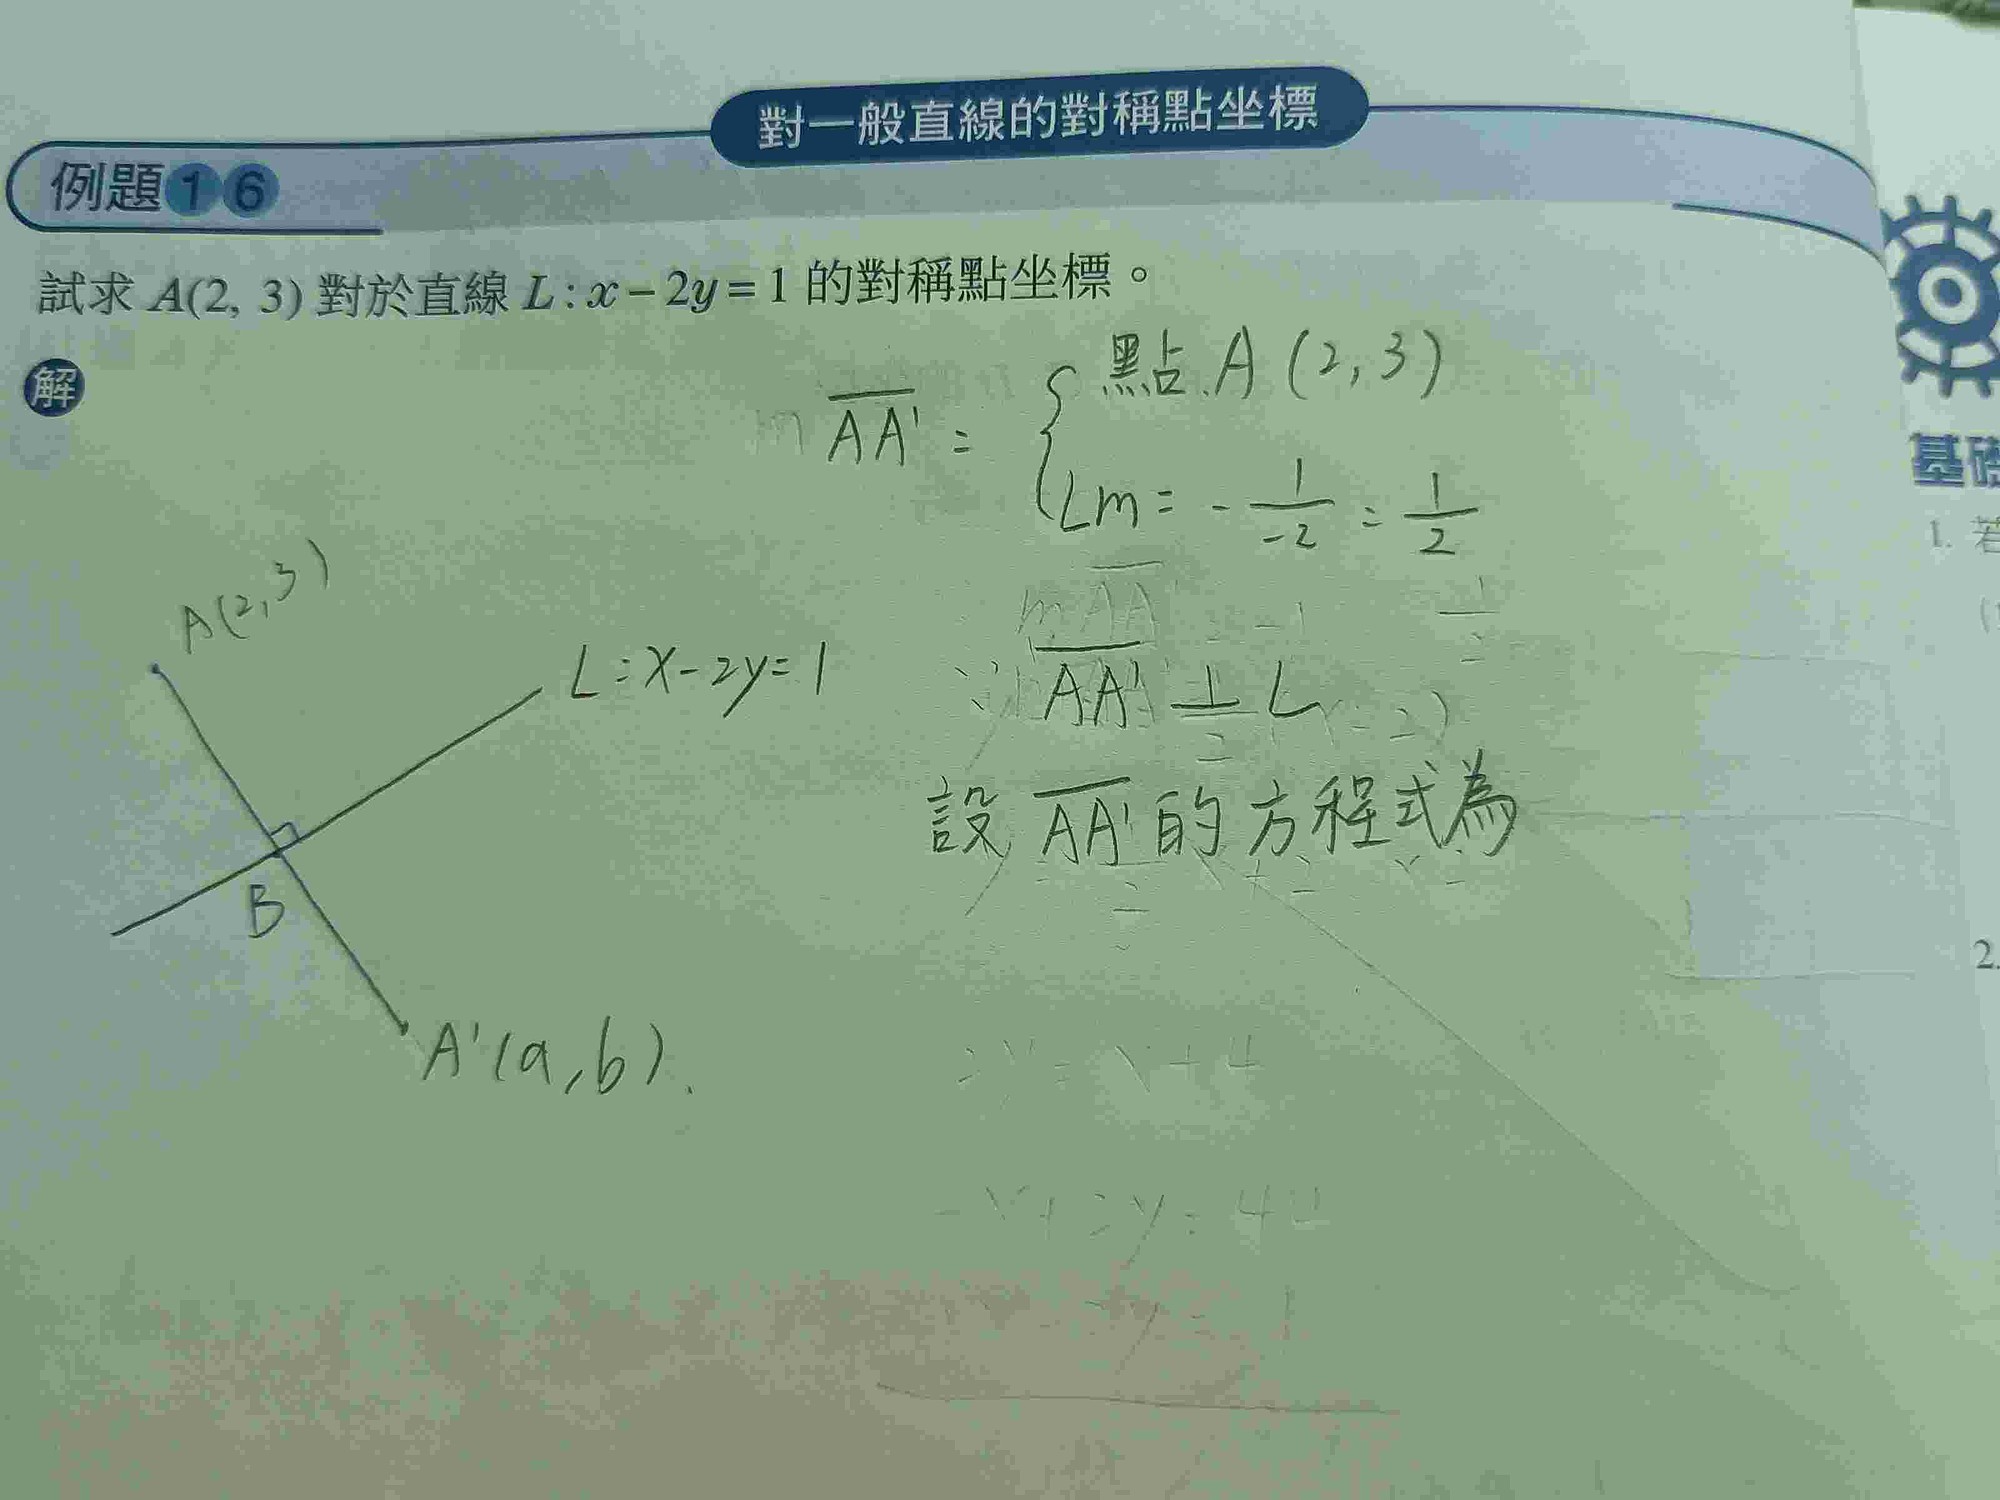 對一般直線的對稱點坐標
例題16
試求 A(2, 3) 對於直線 L : x − 2y = 1 的對稱點坐標。
解
點 A (2, 3)
m AA' =
Lm = - 1/-2 = 1/2
AA' ⊥ L
設 AA' 的方程式為
A(2, 3)
L : x - 2y = 1
B
A'(a, b).
2y = x + 4
基礎
1. 若
2.